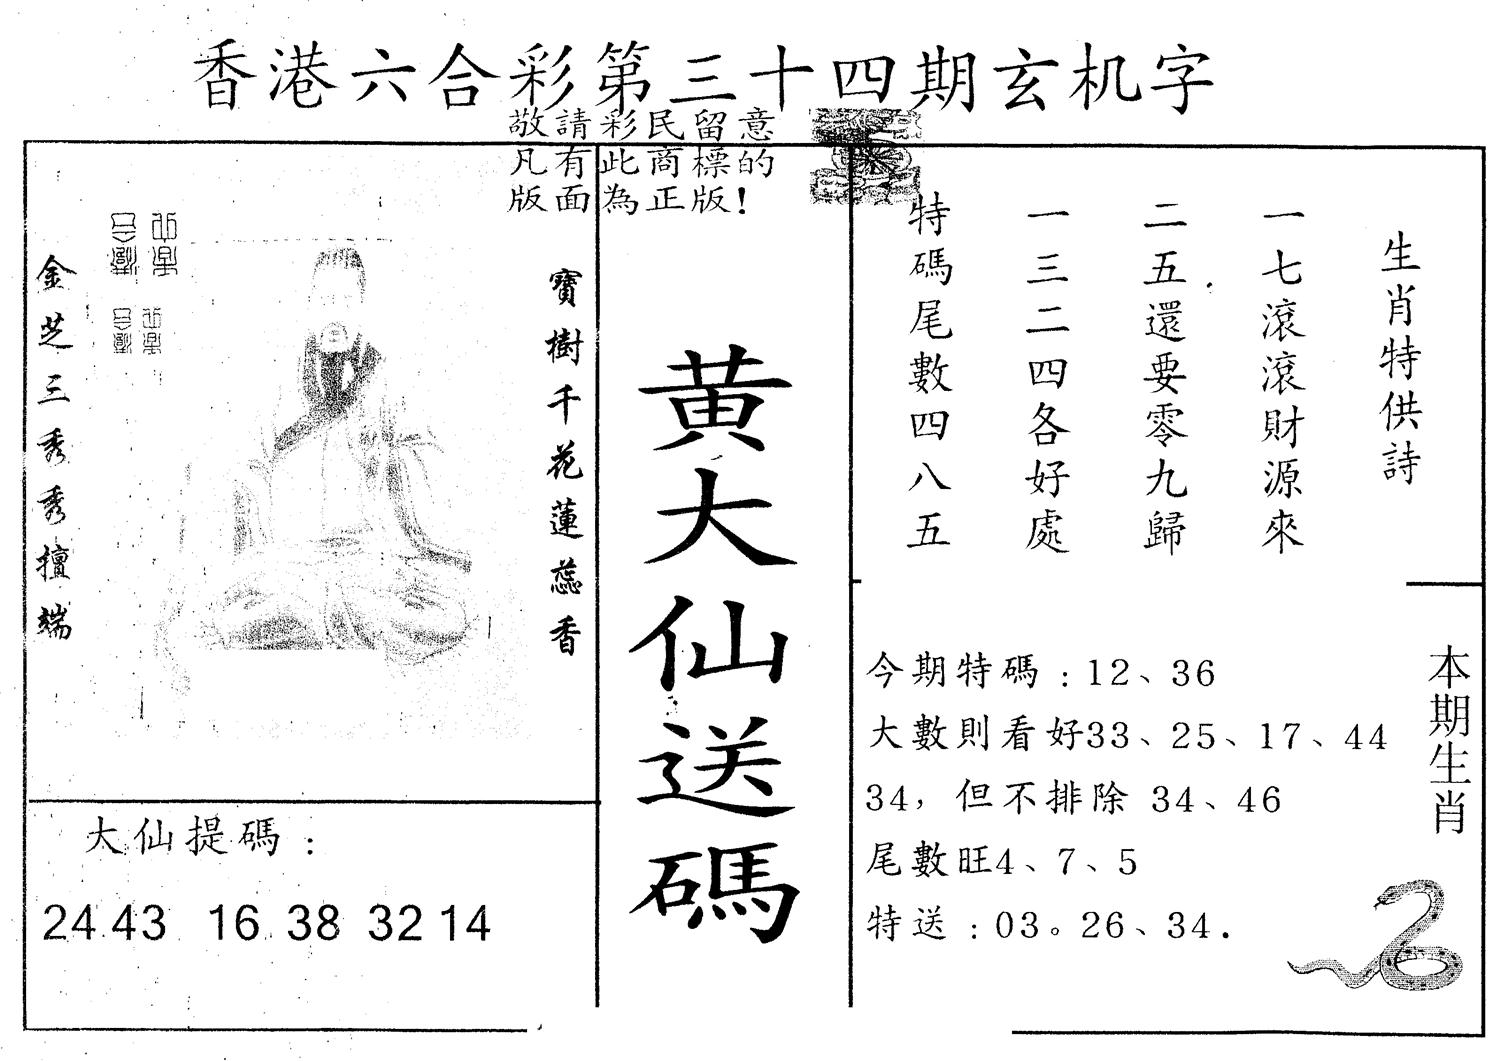 香港六合彩第三十四期玄机字
敬請彩民留意
凡有此商標的
版面為正版!
金芝三秀秀擅端
寶樹千花蓮蕊香
大仙提碼:
24 43 16 38 32 14
黄大仙送碼
生肖特供詩
一七滾滾財源來
二五還要零九歸
一三二四各好處
特碼尾數四八五
今期特碼:12、36
大數則看好33、25、17、44
34,但不排除 34、46
尾數旺4、7、5
特送:03。26、34.
本期生肖